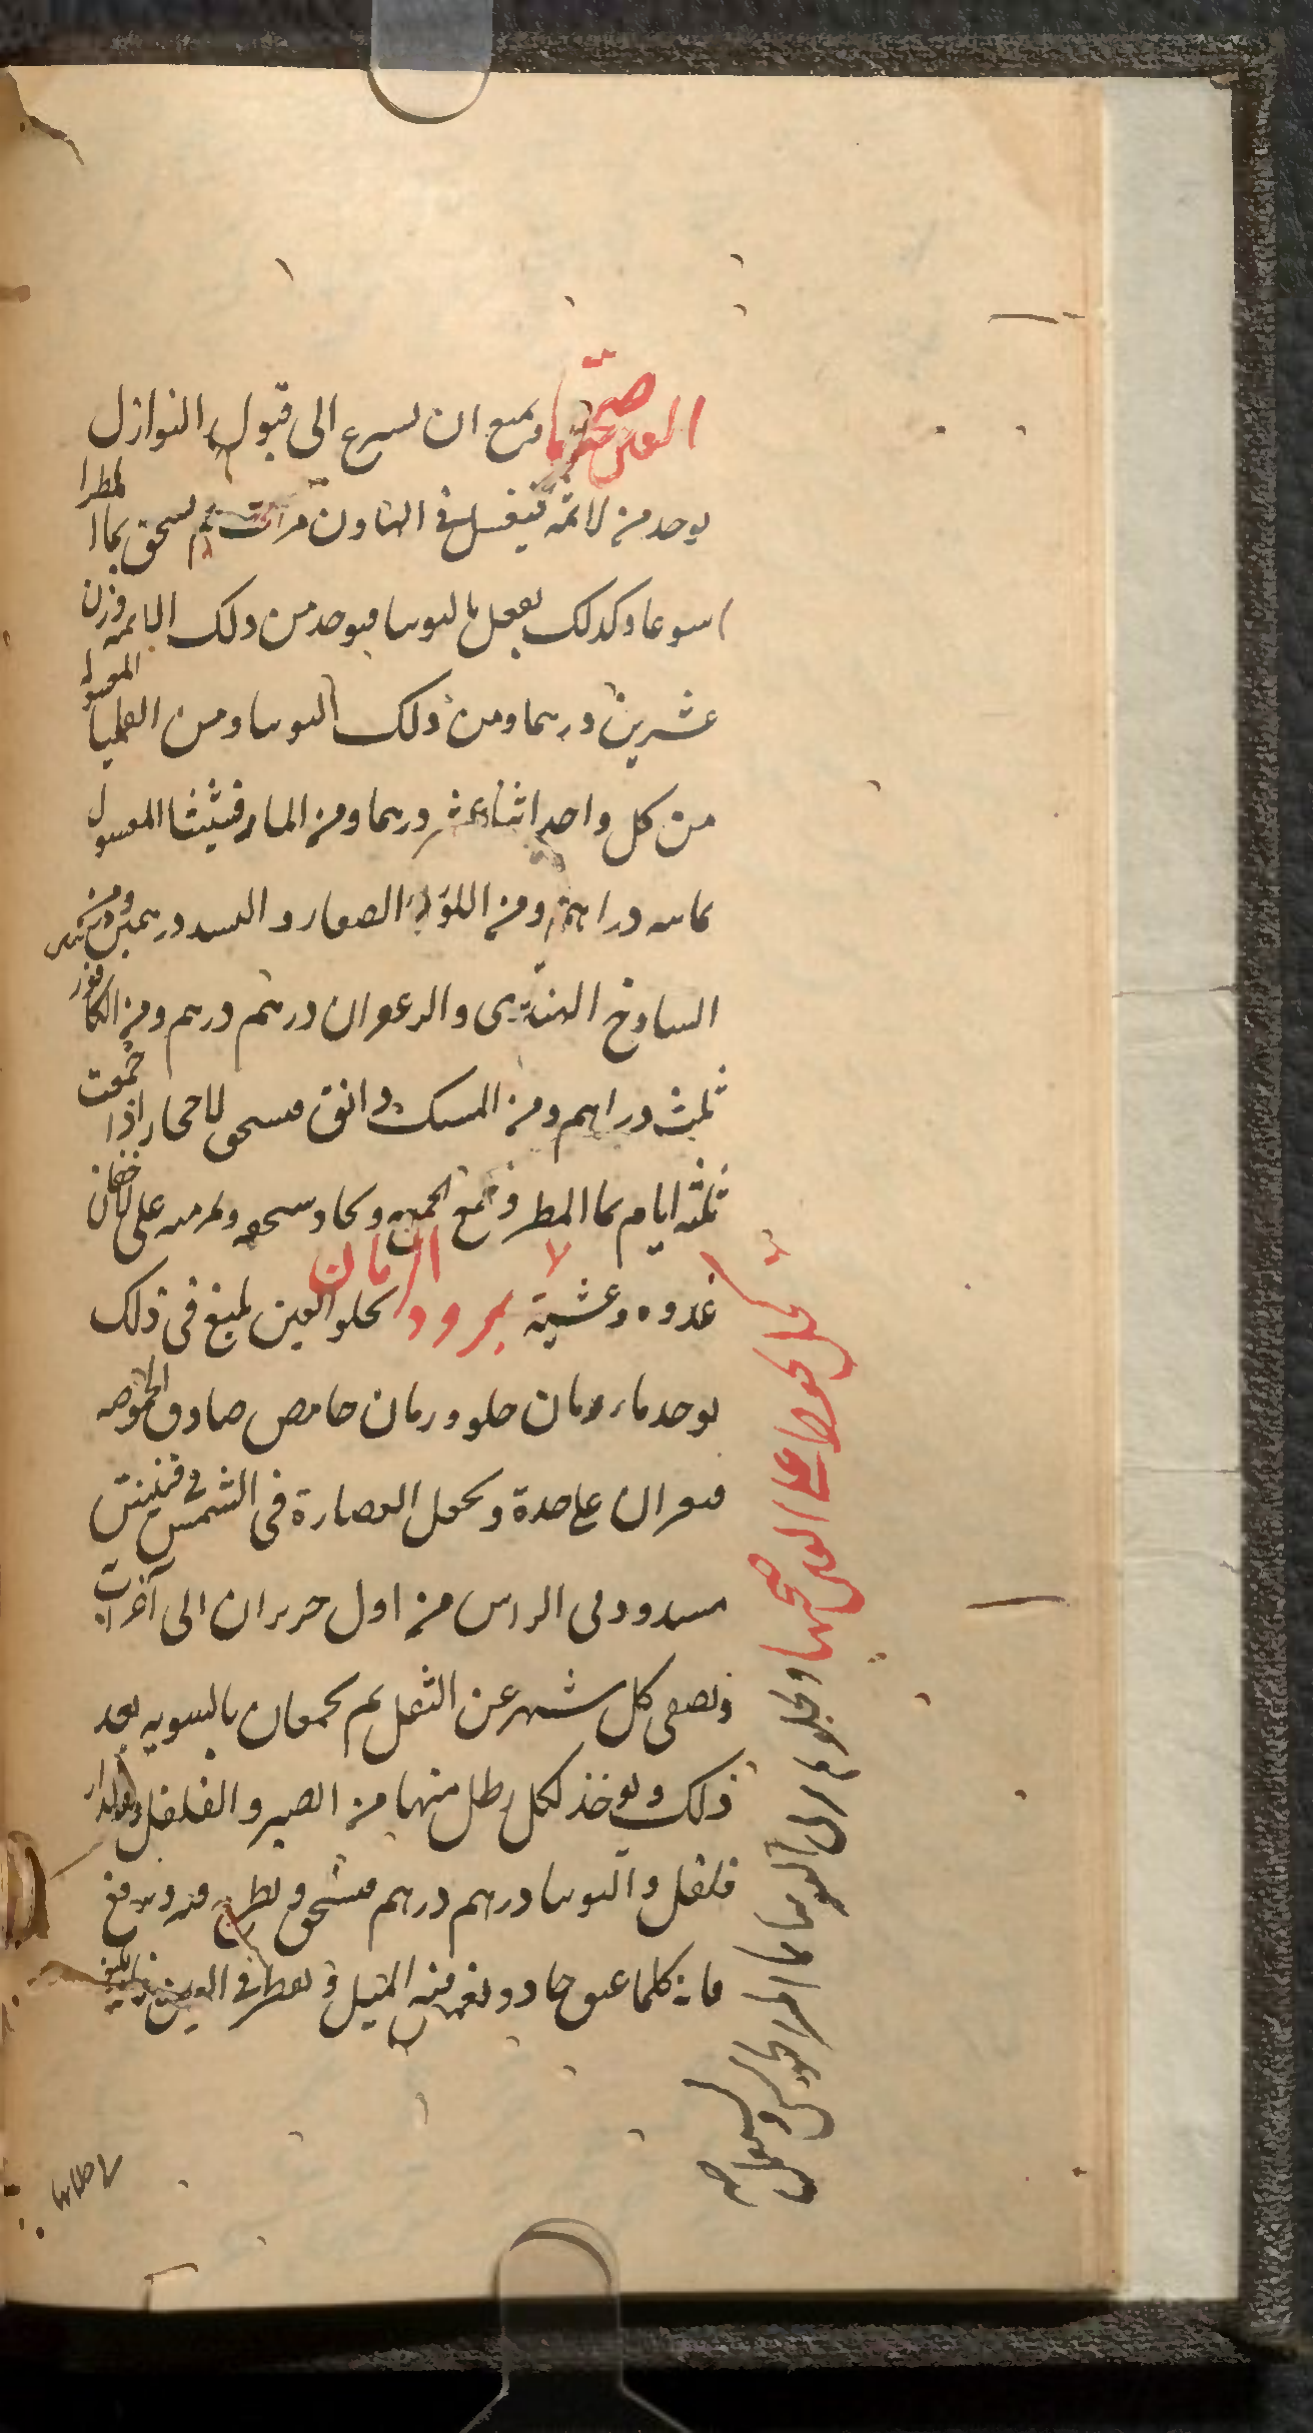 العين صحتها فيمنع ان يسرع الى قبول النوازل
يوخذ من لاثمد فيغسل في الهاون مرات ثم يسحق بماء المطر
اسبوعا وكذلك يفعل بالتوتيا فيوخذ من ذلك الاثمد وزن
عشرين درهما ومن ذلك التوتيا ومن اقليميا المغسول
من كل واحد اثنا عشر درهما ومن المارقشيثا المغسول
ثمانيه دراهم ومن اللؤلؤ الصغار والبسد درهمين ومن
الساذج الهندى والزعفران درهم درهم ومن الكافور
ثلث دراهم ومن المسك دانق مسحق لاحجار اذا جمعت
ثلثه ايام بماء المطر وتجمع الجميع ويجاد سحقه ويلزمه على لاجفان
غدوه وعشية برود الرمان يجلو العين بليغ في ذلك
يوخذ ماء رمان حلو ورمان حامض صادق الحموضه
فيعزلان على حدة ويجعل العصارة في الشمس في قنينتين
مسدودتى الراس من اول حزيران الى آخر اب
وتصفى كل شهر عن الثفل ثم يجمعان بالسويه بعد
ذلك ويوخذ لكل رطل منهما من الصبر والفلفل والدار
فلفل والتوتيا درهم درهم مسحق ويطرح فيه ويرفع
فانه كلما عتق جاد ويغمس فيه الميل ويقطر في العين
كحل يحفظ على العين صحتها ويجلوها